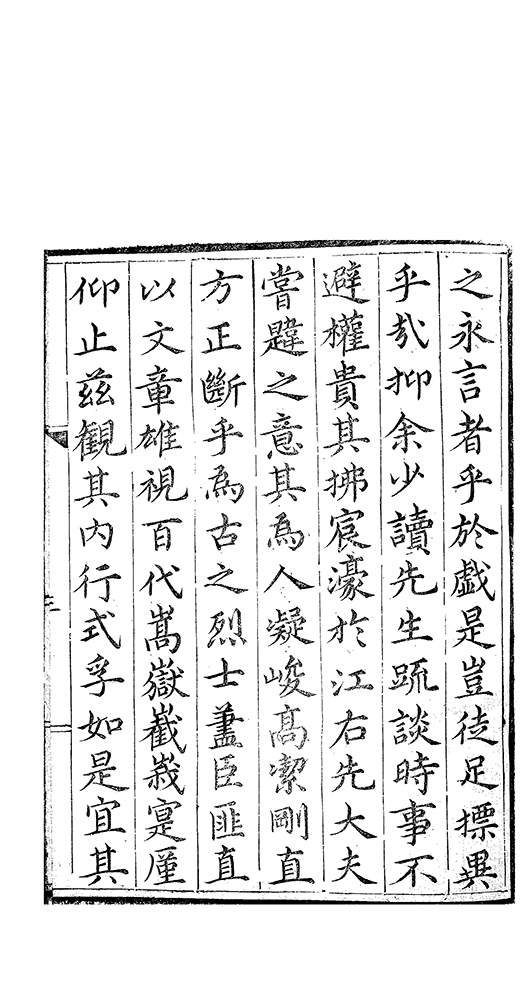 之永言者乎於戯是豈徒足摽異
乎哉抑余少讀先生䟽談時事不
避權貴其拂宸濠於江右先大夫
嘗韙之意其為人凝峻高潔剛直
方正斷乎為古之烈士藎臣匪直
以文章雄視百代嵩嶽巀嶭寔厪
仰止茲觀其內行式孚如是宜其